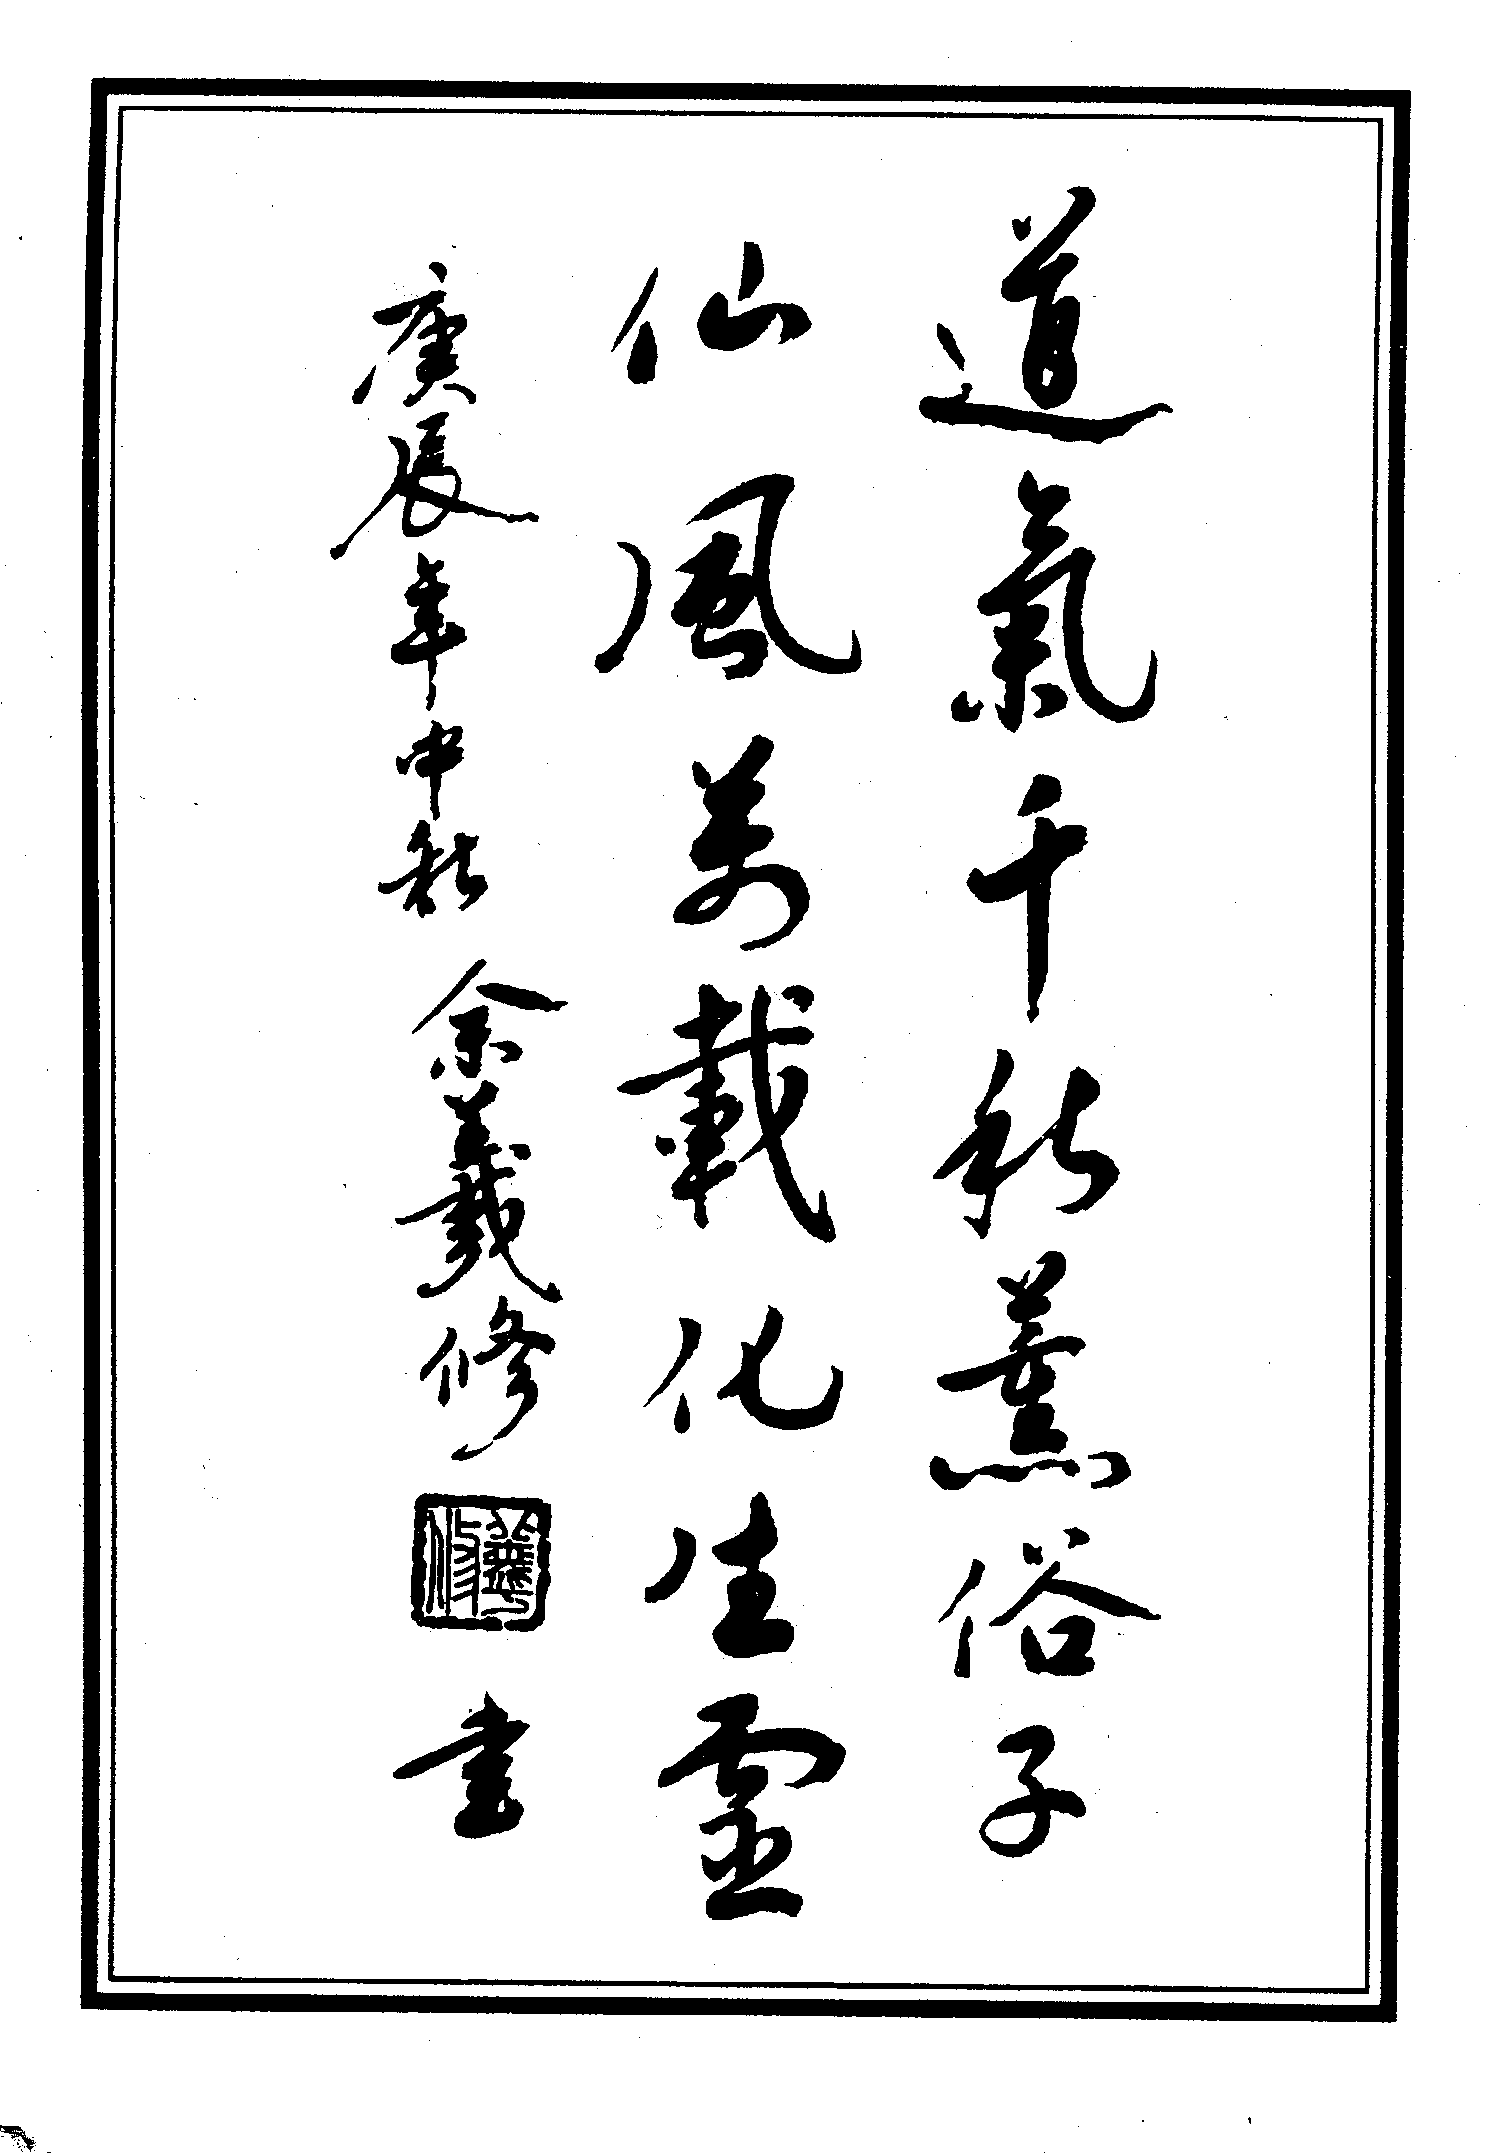 道氣千秋薰俗子
仙風萬載化生靈
庚辰年中秋 余義修 書
義修